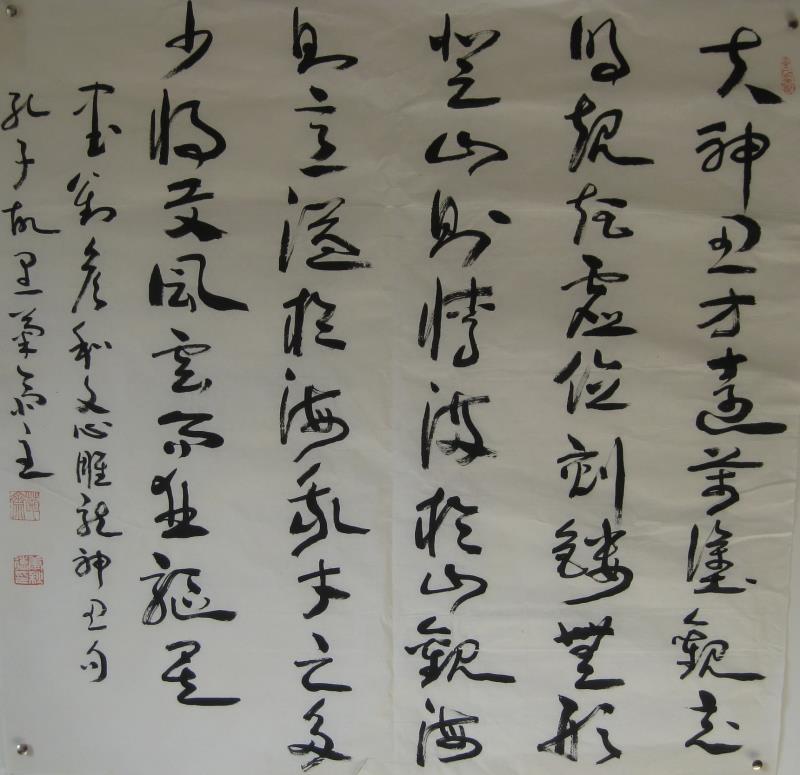 夫神思方運萬塗
規矩虛位刻鏤無形
登山則情滿於山觀海
則意溢於海我才之多
少將與風雲而並驅矣
書劉彥和文心雕龍神思句
孔子故里菊齋主